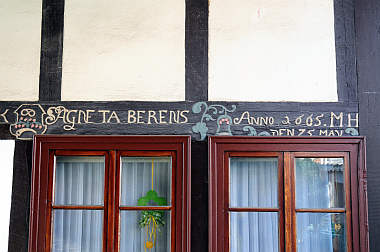 AGNETA BERENS ANNO 1665 MH
DEN 25 MAY